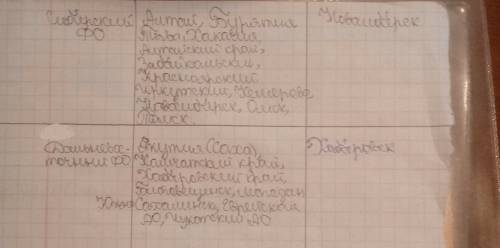 Сибирский ФО
Алтай, Бурятия
Тыва, Хакасия,
Алтайский край,
Забайкальский,
Красноярский
Иркутский, Кемерово
Новосибирск, Омск,
Томск.
Новосибирск
Дальневос-
точный ФО
Якутия (Саха),
Камчатский край,
Хабаровский край,
Благовещенск, Магадан
Сахалинск, Еврейская
АО, Чукотский АО
Хабаровск